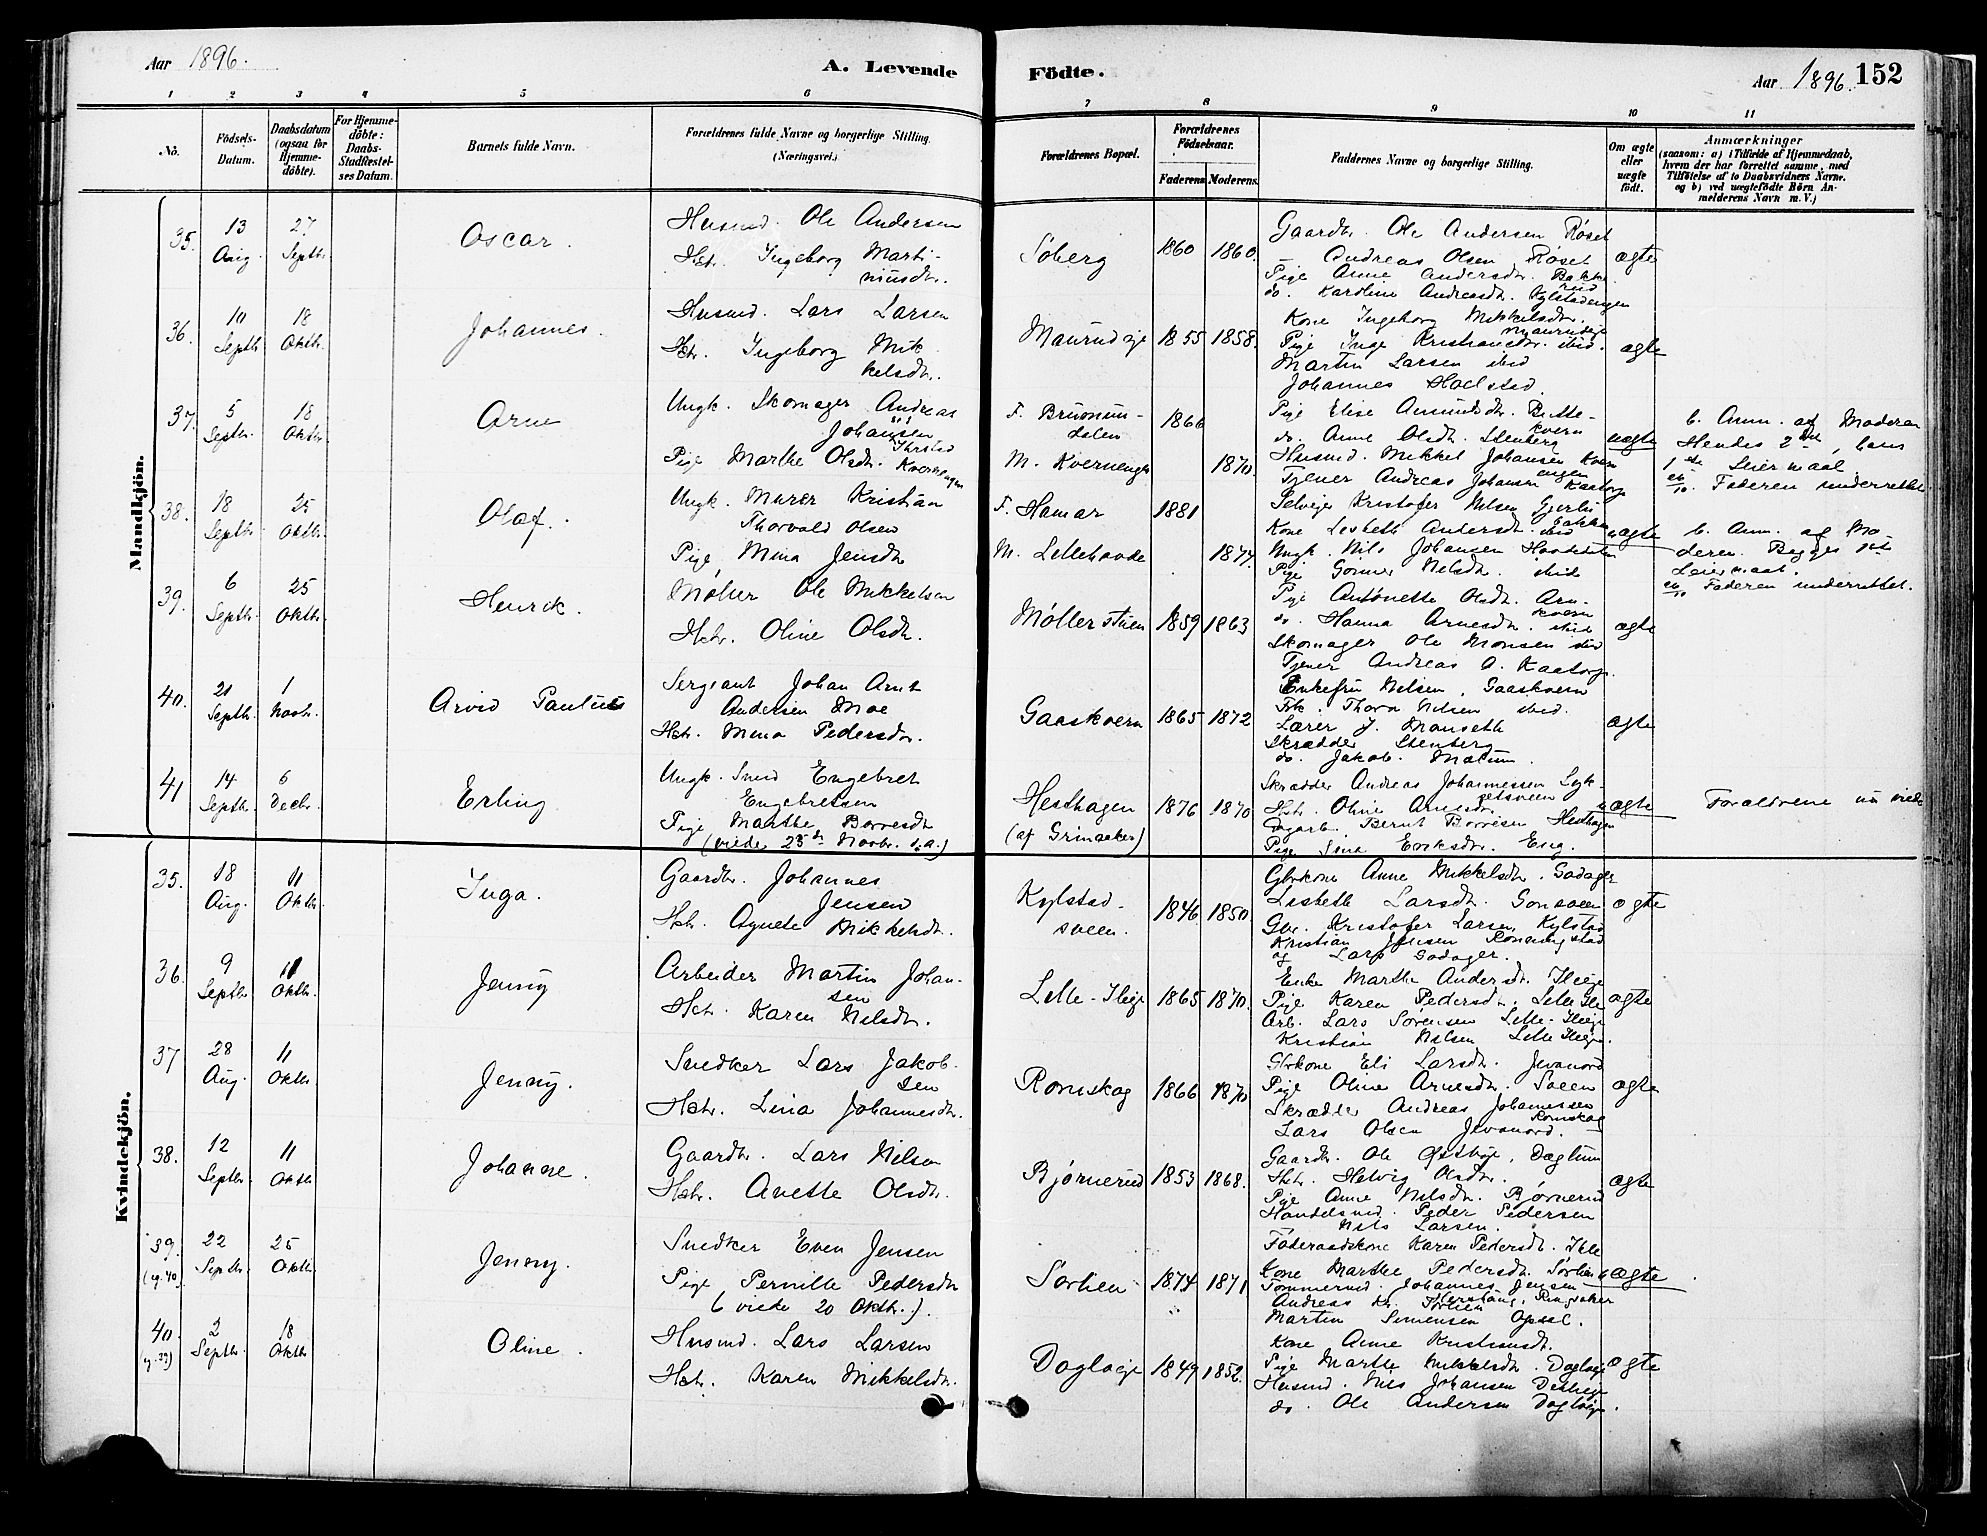 Aar 1896.
A. Levende
Födte.
Aar 1896. 152
1 2 3 4 5 6 7 8 9 10 11
No.
Födsels-Datum.
Daabsdatum (ogsaa for Hjemme-döbte).
For Hjemme-döbte: Daabs-Stadfæstel-ses Datum.
Barnets fulde Navn.
Forældrenes fulde Navne og borgerlige Stilling. (Næringsvei.)
Forældrenes Bopæl.
Forældrenes Födselsaar.
Faderens. Moderens.
Faddernes Navne og borgerlige Stilling.
Om ægte eller uægte födt.
Anmærkninger
(saasom: a) i Tilfælde af Hjemmedaab,
hvem der har forrettet samme, med
Tilföielse af to Daabsvidners Navne.
og b) ved uægtefödte Börn An-
melderens Navn m. V.)
Mandkjön.
35. 13 Aug. 27 Septbr. Oscar.
Husmd. Ole Andersen
Hstr. Ingeborg Marti-
niusdtr.
Søberg 1860 1860.
Gaardbr. Ole Andersen Røset
Andreas Olsen Røset
Pige Anne Andersdtr. Bakke-
rud
do. Karoline Andreasdtr. Kylstadengen
ægte
36. 10 Septbr. 18 Oktbr. Johannes.
Husmd. Lars Larsen
Hstr. Ingeborg Mik
kelsdtr.
Maurudeje 1855 1858.
Kone Ingeborg Mikkelsdtr.
Maurudeje
Pige Inge Kristiansdtr. ibid.
Martin Larsen ibid
Johannes
ægte
37. 5 Septbr. 18 Oktbr. Arne
Ungk. Skomager Andreas
Johansen
Pige Marthe Olsdtr. Kvernengen
F. Bruvun-
dalen 1866
M. Kvernengen 1870.
Pige Elise Amundsdtr. Butte-
kvern
do. Anne Olsdtr. Stenberg
Husmd. Mikkel Johansen Kvern
engen
Tjener Andreas Johansen Kaaborg
uægte
b. Anm. af Moderen
Hendes 2det, hans
1ste Leiermaal.
Faderen underrettet
38. 18 Septbr. 25 Oktbr. Olaf.
Ungk. Murer Kristian
Thorvald Olsen
Pige Mina Jensdtr
F. Hamar 1881
M. Lillehovde 1877.
Selveier Kristofer Nilsen Gjerlu
bakken
Kone Lisbeth Andersdtr. ibid
Ungk. Nils Johansen
Pige Gonner Nilsdtr. ibid
uægte
b. Anm. af Mo
deren. Begges 1ste
Leiermaal.
Faderen underrettet.
39. 6 Septbr. 25 Oktbr. Henrik.
Møller Ole Mikkelsen
Hstr. Oline Olsdtr.
Møllerstuen 1859 1863
Pige Antonette Olsdtr. Arn-
kvern
do. Hanna Arnesdtr. ibid
Skomager Ole Monsen ibid
Tjener Andreas A. Kaaborg.
ægte
40. 21 Septbr. 1 Novbr. Arvid Paulus
Sergeant Johan Arnt
Andersen Moe
Hstr. Mina Pedersdtr.
Gaaskvern 1865 1872
Enkefru Nilsen. Gaaskvern
Frk. Thora Nilsen ibid.
Lærer J. Manseth
Skrædder Stenberg
do. Jakob. Mælum.
ægte
41 14 Septbr. 6 Decbr. Erling
Ungk. Smed Engebret
Engebretsen
Pige Marthe Borresdtr
(viede 25de Novbr. d.a.)
Hesthagen
(af Grimaker) 1876 1870
Skrædder Andreas Johannessen Lyk-
Hstr. Oline Arnesdtr.
Dagarb. Bernt Borresen Hesthagen
Pige Lina Eriksdtr. Eng.
uægte
Forældrene nu viede
Kvindekjön.
35. 18 Aug. 11 Oktbr. Inga.
Gaardbr. Johannes
Jensen
Hstr. Agnete Mikkelsdtr.
Kylstad-
sveen. 1846 1850.
Gbrkone Anne Mikkelsdtr. Godager
Lisbeth Larsdtr. Gonsveen
Gbr. Kristofer Larsen Kylstad
Kristian Jensen
og Lars Godager.
ægte
36. 9 Septbr. 11 Oktbr. Jenny
Arbeider Martin Johan-
sen
Hstr. Karen Nilsdtr.
Lille-Ileje 1865 1870.
Enke Marthe Andersdtr. Ileje
Pige Karen Pedersdtr. Lille Ile
Arb. Lars Sørensen Lille-Ileje
Kristian Nilsen Lille Ileje.
ægte
37 28 Aug. 11 Oktbr. Jenny.
Snedker Lars Jakob-
sen
Hstr. Lina Johannesdtr.
Romskog 1866 1870
Gbrkone Eli Larsdtr. Jevanord
Pige Oline Arnesdtr. Sveen
Skrædder Andreas Johannessen
Romskog
Lars Olsen Jevanord.
ægte
38. 12 Septbr. 11 Oktbr. Johanne.
Gaardbr. Lars Nilsen
Hstr. Anette Olsdtr.
Bjørnerud 1853 1868.
Gaardbr. Ole Østbye, Dæglum
Hstr. Helvig Olsdtr.
Pige Anne Nilsdtr. Bjørnerud
Handelsmd. Peder Pedersen
Nils Larsen.
ægte
39. (eg. 40) 22 Septbr. 25 Oktbr. Jenny.
Snedker Even Jensen
Pige Pernille Pedersdtr
(viede 20 Oktbr.).
Sorlien 1874 1871
Føderaadskone Karen Pedersdtr. Ile
Kone Marthe Pedersdtr. Sorlien
Tømmermd. Johannes Jensen
Ringsaker
Andreas Kr. Sorlien
Martin Simensen Opsal.
uægte
40. (eg. 39) 2 Septbr. 18 Oktbr. Oline.
Husmd. Lars Larsen
Hstr. Karen Mikkelsdtr.
Dogloeje 1849 1852.
Kone Anne Kristiansdtr.
Pige Marthe Mikkelsdtr. Dogloeje
Husmd. Nils Johansen
do. Ole Andersen Dogloeje.
ægte